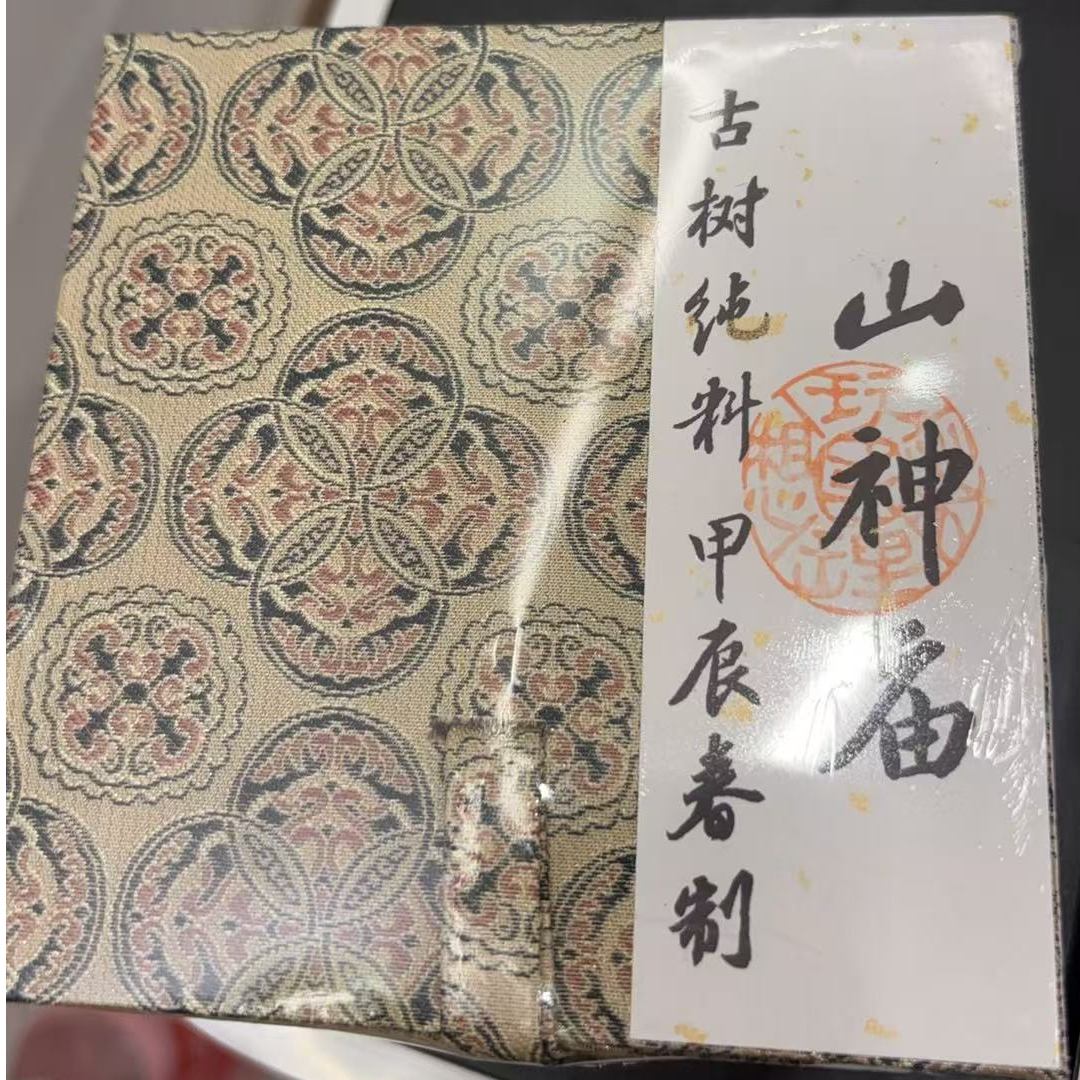 山神庙
古树纯料甲辰春制